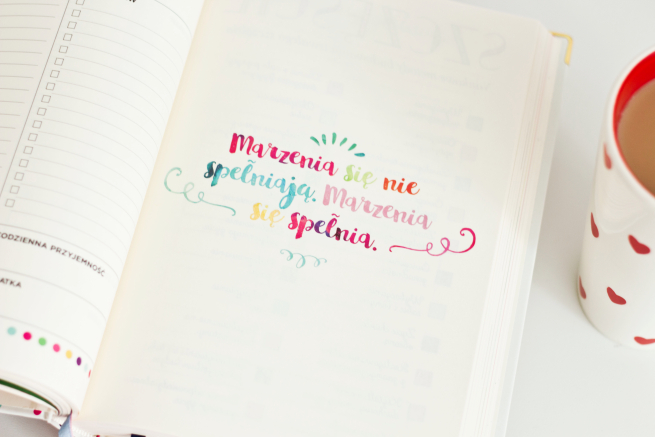 Marzenia się nie
spełniają. Marzenia
się spełnia.
ODZIENNA PRZYJEMNOŚĆ
ATKA